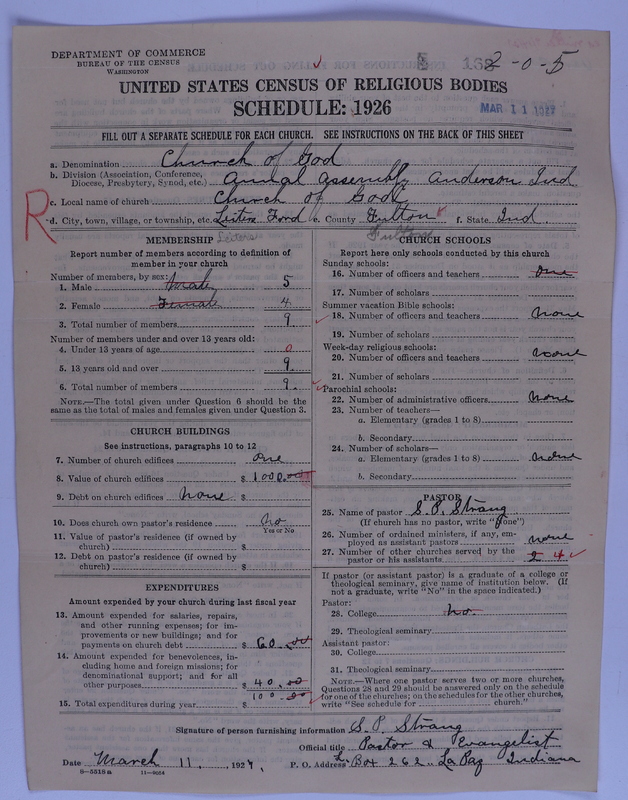 DEPARTMENT OF COMMERCE
BUREAU OF THE CENSUS
WASHINGTON
162-0-5
UNITED STATES CENSUS OF RELIGIOUS BODIES
SCHEDULE: 1926
MAR 11 1927
FILL OUT A SEPARATE SCHEDULE FOR EACH CHURCH. SEE INSTRUCTIONS ON THE BACK OF THIS SHEET
a. Denomination Church of God
b. Division (Association, Conference, Diocese, Presbytery, Synod, etc.) Annual Assembly Anderson Ind.
c. Local name of church Church of God
R
d. City, town, village, or township, etc. Liters Ford e. County Fulton f. State Ind
Fulton
MEMBERSHIP
Report number of members according to definition of
member in your church
Number of members, by sex:
1. Male Male 5
2. Female Female 4
3. Total number of members 9
Number of members under and over 13 years old:
4. Under 13 years of age 0
5. 13 years old and over 9
6. Total number of members 9.
NOTE.—The total given under Question 6 should be
same as the total of males and females given under Question 3.
CHURCH BUILDINGS
See instructions, paragraphs 10 to 12
7. Number of church edifices one
8. Value of church edifices $ 1000.00
9. Debt on church edifices None $
10. Does church own pastor's residence No
Yes or No
11. Value of pastor's residence (if owned by
church) $
12. Debt on pastor's residence (if owned by
church) $
EXPENDITURES
Amount expended by your church during last fiscal year
13. Amount expended for salaries, repairs,
and other running expenses; for im-
provements or new buildings; and for
payments on church debt $ 60.00
14. Amount expended for benevolences, in-
cluding home and foreign missions; for
denominational support; and for all
other purposes $ 40.00
15. Total expenditures during year $ 100-00
CHURCH SCHOOLS
Report here only schools conducted by this church
Sunday schools:
16. Number of officers and teachers One
17. Number of scholars
Summer vacation Bible schools:
18. Number of officers and teachers none
19. Number of scholars
Week-day religious schools:
20. Number of officers and teachers none
21. Number of scholars
Parochial schools:
22. Number of administrative officers none
23. Number of teachers—
a. Elementary (grades 1 to 8)
b. Secondary
24. Number of scholars—
a. Elementary (grades 1 to 8) none
b. Secondary
PASTOR
25. Name of pastor S. P. Strang
(If church has no pastor, write "None")
26. Number of ordained ministers, if any, em-
ployed as assistant pastors none
27. Number of other churches served by the
pastor or his assistants 2 4
If pastor (or assistant pastor) is a graduate of a college or
theological seminary, give name of institution below. (If
not a graduate, write "No" in the space indicated.)
Pastor:
28. College no.
29. Theological seminary
Assistant pastor:
30. College
31. Theological seminary
NOTE.—Where one pastor serves two or more churches,
Questions 28 and 29 should be answered only on the schedule
for one of the churches; on the schedules for the other churches,
write "See schedule for church."
Signature of person furnishing information S. P. Strang
Official title Pastor & Evangelist
Date March 11, 1927. P. O. Address Box 262 La Paz Indiana
8-5518a 11-9054